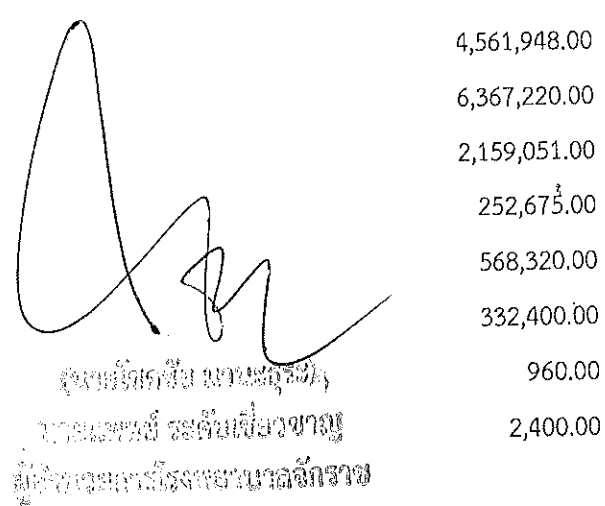 4,561,948.00
6,367,220.00
2,159,051.00
252,675.00
568,320.00
332,400.00
(นายโชคชัย มานะธุระ)
960.00
นายแพทย์ ระดับเชี่ยวชาญ
2,400.00
ผู้อำนวยการโรงพยาบาลจักราช